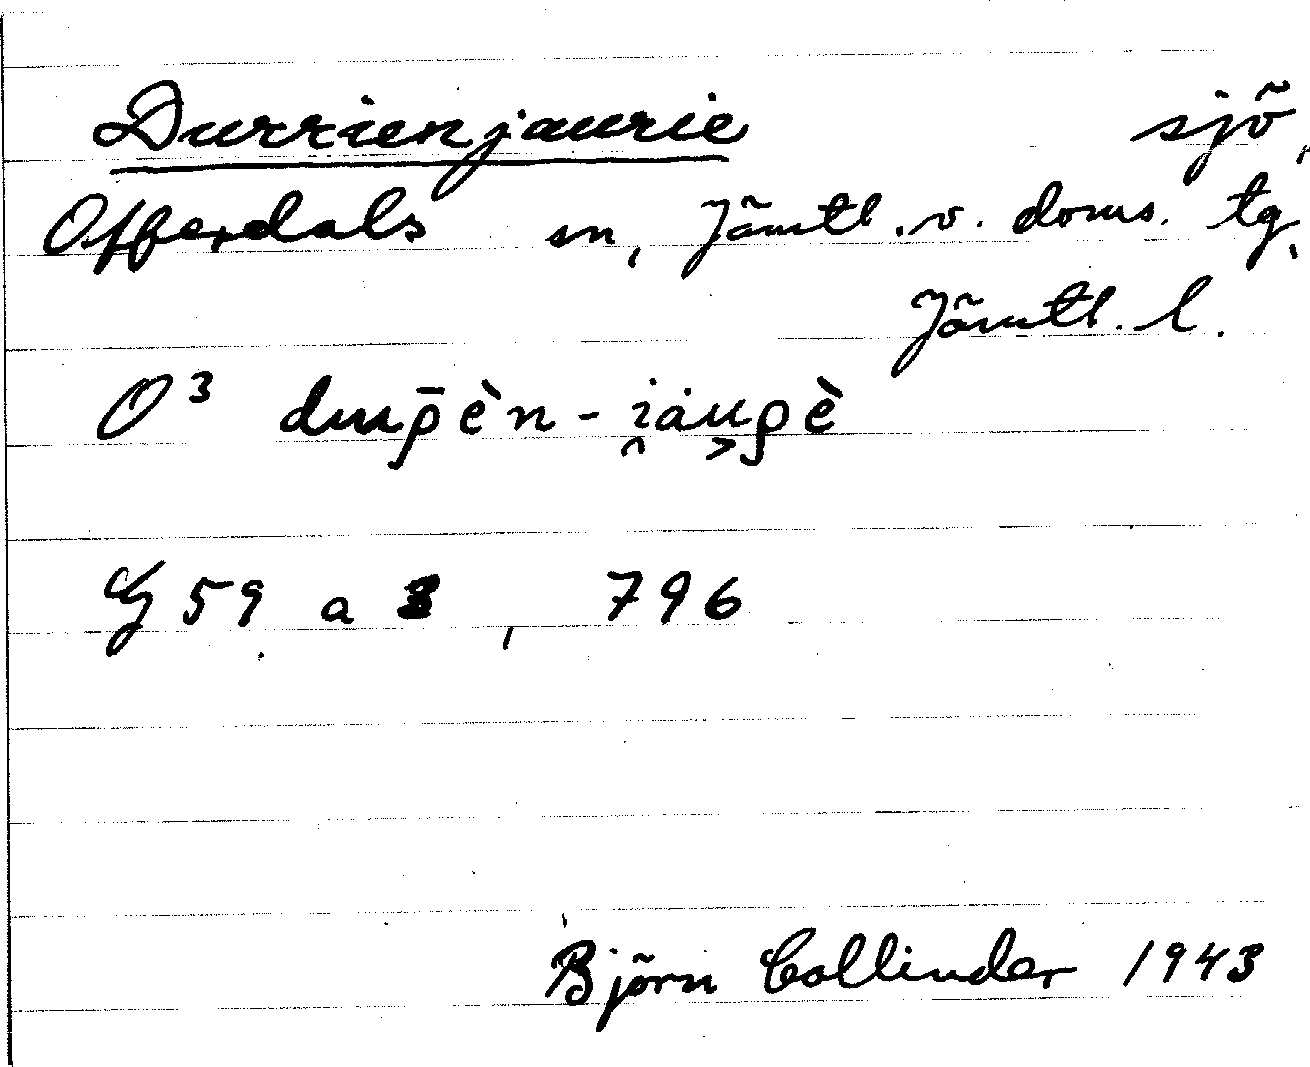 Durrienjaurie sjö,
Offerdals sn, Jämtl. v. doms. tg,
Jämtl. l.
O³ duρ̄èn - i̯au̬ρè
G 59 a 3, 796
Björn Collinder 1943